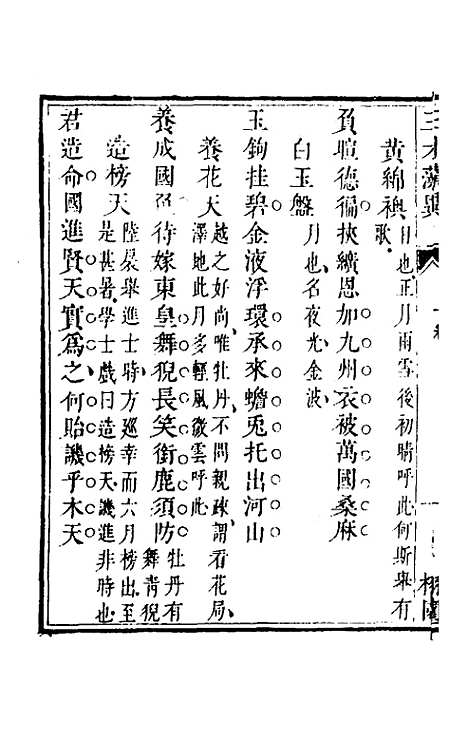 黄綿襖 日也正月雨雪後初晴呼此何斯舉有
歌
負暄德徧挾纊恩加九州衣被萬國桑麻
白玉盤 月也名夜光金波
玉鉤挂碧金液浮環承來蟾兎托出河山
養花天 越之好尚唯牡丹不問親疎謂看花局
澤地此月多輕風微雲呼此
養成國色待嫁東皇舞猊長笑銜鹿須防 牡丹有
舞青猊
造榜天 陸扆舉進士時方巡幸而六月榜出至
是甚暑學士戲曰造榜天譏進非時也
君造命國進賢天實爲之何貽譏乎木天